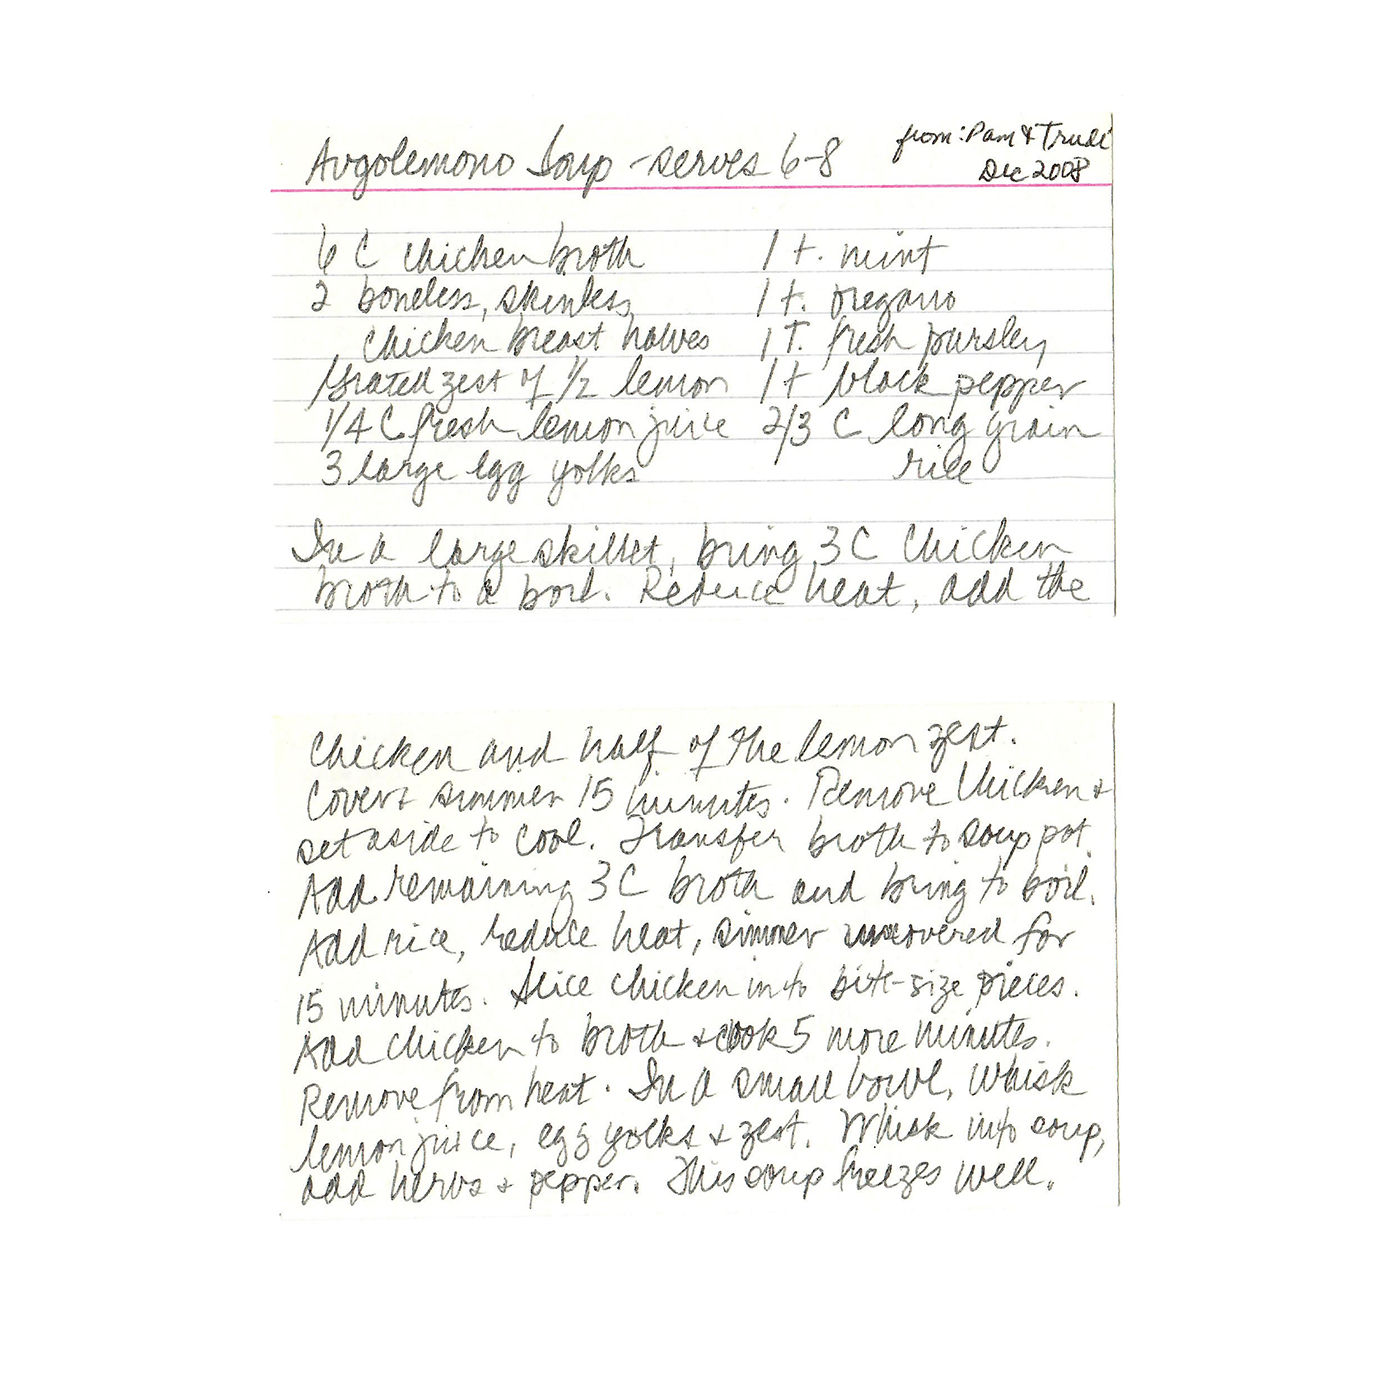 Avgolemono Soup - serves 6-8
from: Pam & Trudi
Dec 2008
6 C chicken broth
2 boneless, skinless
chicken breast halves
Grated zest of 1/2 lemon
1/4 C fresh lemon juice
3 large egg yolks
1 t. mint
1 t. oregano
1 T. fresh parsley
1 t black pepper
2/3 C long grain
rice
In a large skillet, bring 3 C Chicken
broth to a boil. Reduce heat, add the
Chicken and half of the lemon zest.
Cover & simmer 15 minutes. Remove Chicken &
set aside to cool. Transfer broth to soup pot.
Add remaining 3 C broth and bring to boil.
Add rice, reduce heat, simmer uncovered for
15 minutes. Slice chicken into bite-size pieces.
Add chicken to broth & cook 5 more minutes.
Remove from heat. In a small bowl, whisk
lemon juice, egg yolks & zest. Whisk into soup,
add herbs & pepper. This soup freezes well.